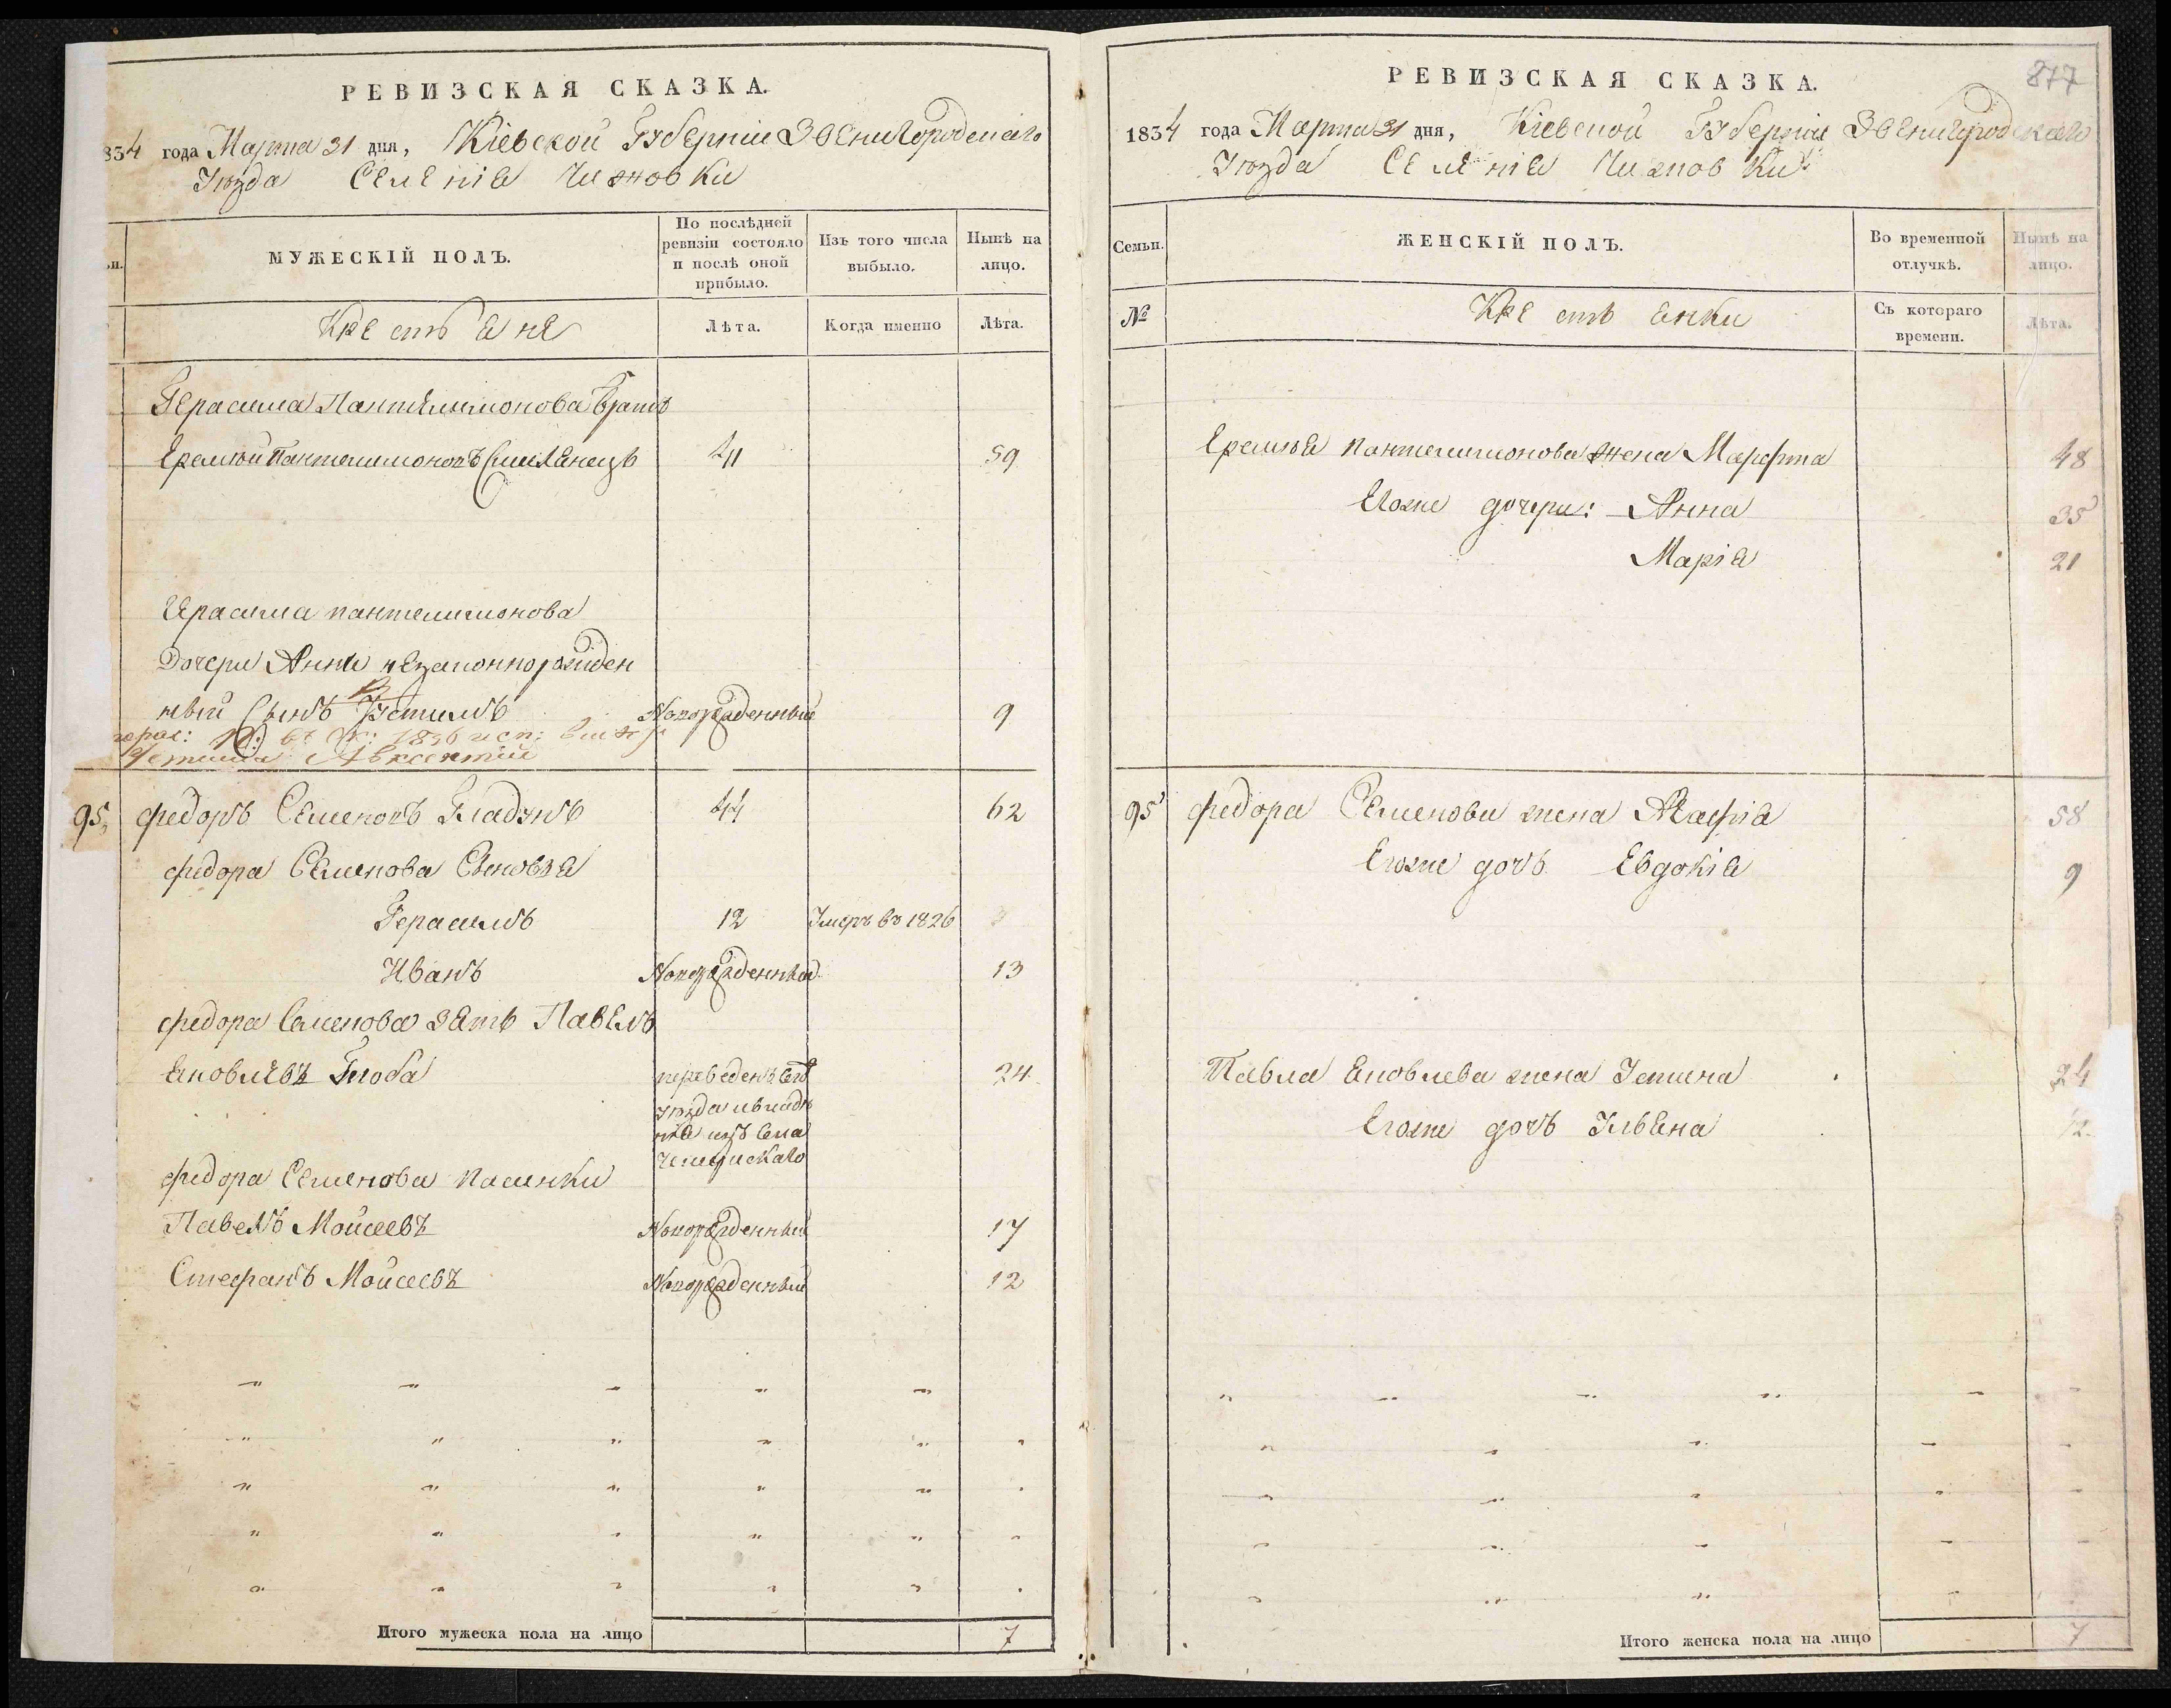 РЕВИЗСКАЯ СКАЗКА.
834 года Марта 31 дня, Кіевской Губерніи Звенигородскаго
Уѣзда Селенія Чижовки
МУЖЕСКІЙ ПОЛЪ.
По послѣдней ревизіи состояло и послѣ оной прибыло.
Изъ того числа выбыло.
Нынѣ на лицо.
Крестьяне
Лѣта.
Когда именно
Лѣта.
Герасима Пантелимонова братъ
Еремѣй Пантелимоновъ Смилянецъ 41 59
Герасима пантелимонова
Дочери Анны незаконнорожден
ный Сынъ Устимъ Новорожденный 9
Устима Авксентій
95, Федоръ Семеновъ Гладунъ 44 62
Федора Семенова Сыновья
Герасимъ 12 Умеръ въ 1826
Иванъ Новорожденный 13
Федора Семенова Зять Павелъ
Яковлевъ Глоба переведенъ 24
уѣзда
изъ Села
Федора Семенова Пасынки
Павелъ Мойсеевъ Новорожденный 17
Стефанъ Мойсеевъ Новорожденный 12
Итого мужеска пола на лицо 7
877
РЕВИЗСКАЯ СКАЗКА.
1834 года Марта 31 дня, Кіевской Губерніи Звенигородскаго
Уѣзда Селенія Чижовки
Семьи.
ЖЕНСКІЙ ПОЛЪ.
Во временной отлучкѣ.
Нынѣ на лицо.
№
Крестьянки
Съ котораго времени.
Лѣта.
Еремѣя Пантелимонова жена Марфта 48
Егоже дочери: Анна 35
Марія 21
95 Федора Семенова жена 58
Егоже дочь Евдокія 9
Павла Яковлева жена Устина 24
Егоже дочь Ульяна 1/2
Итого женска пола на лицо 7